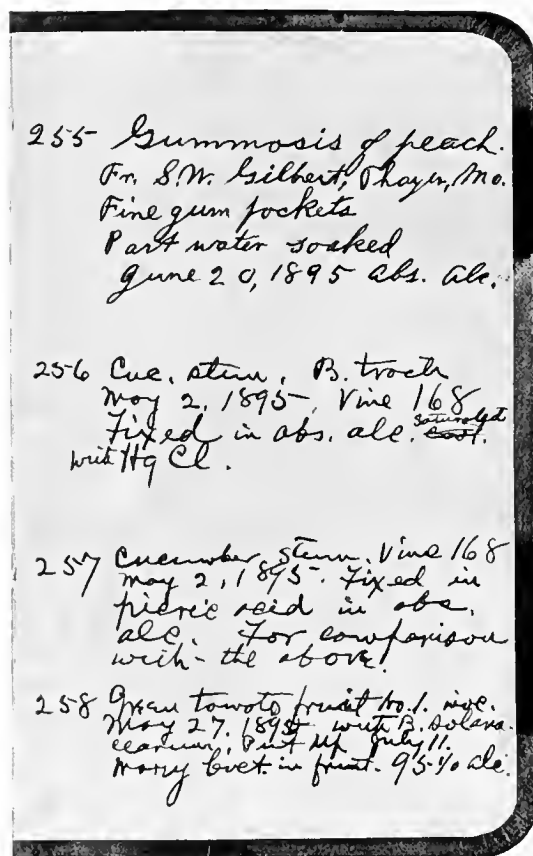 255 Gummosis of peach.
Fr. S.W. Gilbert, Thayer, Mo.
Fine gum pockets
Part water soaked
June 20, 1895 abs. alc.
256 Cuc. stem, B. trach
May 2, 1895, Vine 168
Fixed in abs. alc. saturated
with Hg Cl.
257 Cucumber stem. Vine 168
May 2, 1895. Fixed in
picric acid in abs.
alc. For comparison
with the above.
258 Green tomato fruit No. 1. inoc.
May 27, 1895 with B. solana-
cearum, Put up July 11.
Many bact. in fruit. 95% alc.